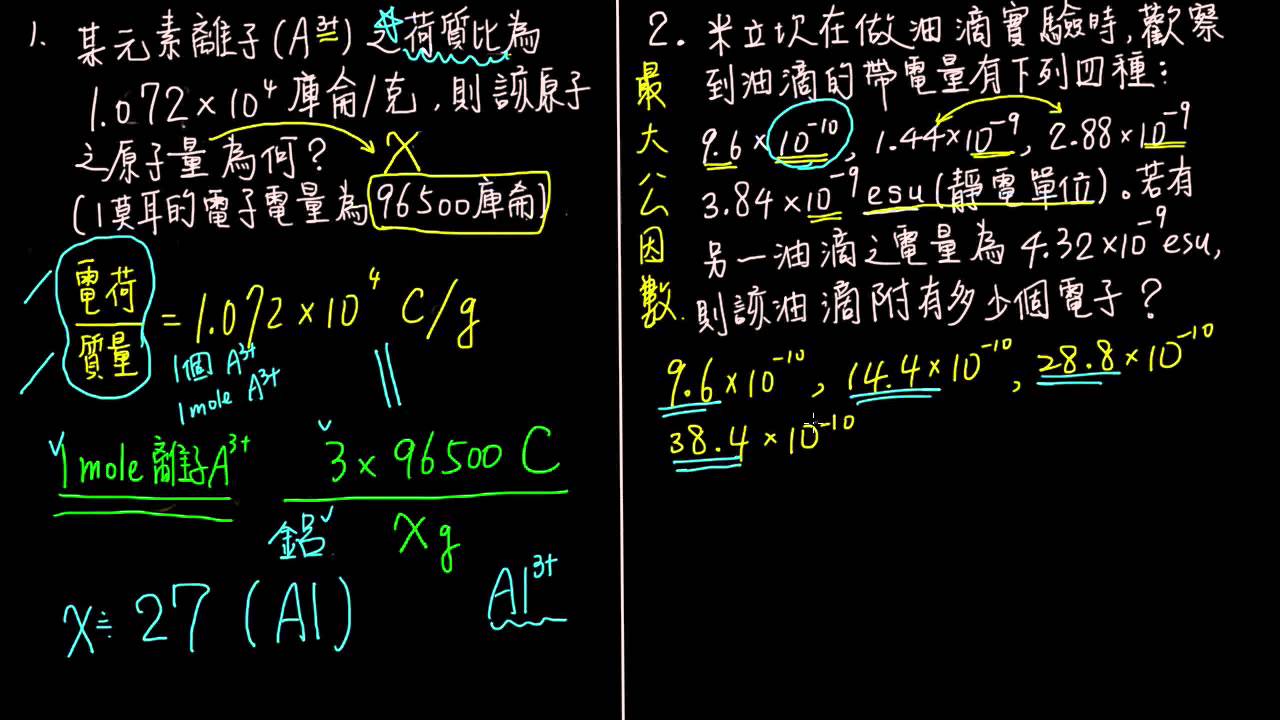 1. 某元素離子(A³⁺)之荷質比為
1.072×10⁴庫侖/克,則該原子
之原子量為何?
X
(1莫耳的電子電量為96500庫侖)
電荷
質量
= 1.072×10⁴ C/g
1個 A³⁺
1mole A³⁺
||
1mole離子A³⁺
3×96500 C
X g
鋁
X≒27 (Al)
Al³⁺
2. 米立坎在做油滴實驗時,觀察
到油滴的帶電量有下列四種:
9.6×10⁻¹⁰, 1.44×10⁻⁹, 2.88×10⁻⁹
3.84×10⁻⁹esu(靜電單位)。若有
另一油滴之電量為4.32×10⁻⁹esu,
則該油滴附有多少個電子?
最大公因數
9.6×10⁻¹⁰, 14.4×10⁻¹⁰, 28.8×10⁻¹⁰
38.4×10⁻¹⁰